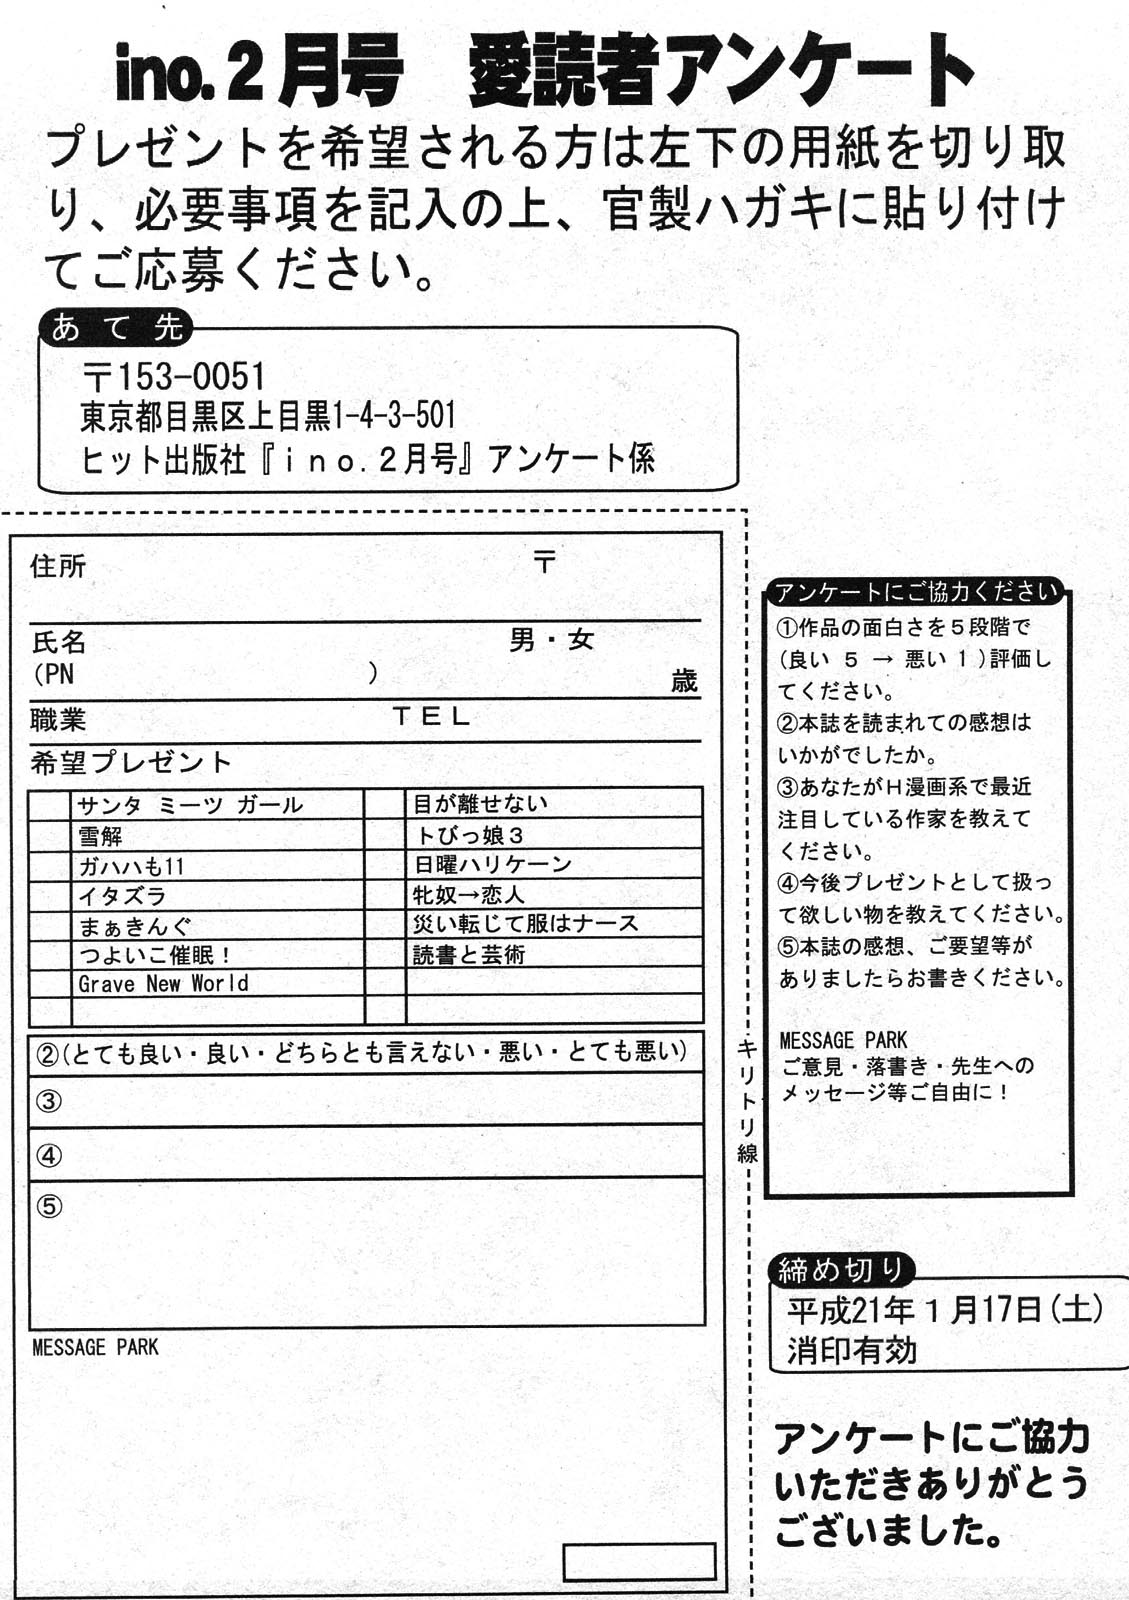 ino.2月号　愛読者アンケート
プレゼントを希望される方は左下の用紙を切り取
り、必要事項を記入の上、官製ハガキに貼り付け
てご応募ください。
あて先
〒153-0051
東京都目黒区上目黒1-4-3-501
ヒット出版社『ｉｎｏ.２月号』アンケート係
住所　〒
氏名　男・女
(PN　)　歳
職業　ＴＥＬ
希望プレゼント
サンタ ミーツ ガール　目が離せない
雪解　トびっ娘３
ガハハも11　日曜ハリケーン
イタズラ　牝奴→恋人
まぁきんぐ　災い転じて服はナース
つよいこ催眠！　読書と芸術
Grave New World
②(とても良い・良い・どちらとも言えない・悪い・とても悪い)
③
④
⑤
MESSAGE PARK
キリトリ線
アンケートにご協力ください
①作品の面白さを５段階で
(良い ５ → 悪い１)評価し
てください。
②本誌を読まれての感想は
いかがでしたか。
③あなたがＨ漫画系で最近
注目している作家を教えて
ください。
④今後プレゼントとして扱っ
て欲しい物を教えてください。
⑤本誌の感想、ご要望等が
ありましたらお書きください。
MESSAGE PARK
ご意見・落書き・先生への
メッセージ等ご自由に！
締め切り
平成21年１月17日(土)
消印有効
アンケートにご協力
いただきありがとう
ございました。